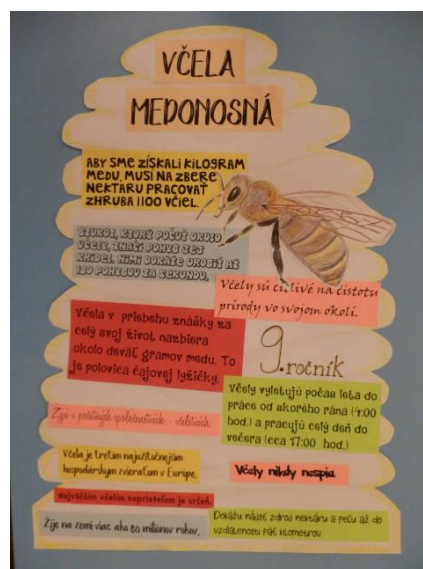 VČELA
MEDONOSNÁ
ABY SME ZÍSKALI KILOGRAM
MEDU, MUSÍ NA ZBERE
NEKTÁRU PRACOVAŤ
ZHRUBA 1100 VČIEL.
BZUKOT, KTORÝ POČUŤ OKOLO
VČELY, ZNAČÍ POHYB JEJ
KRÍDEL. NIMI DOKÁŽE UROBIŤ AŽ
180 POHYBOV ZA SEKUNDU.
Včely sú citlivé na čistotu
prírody vo svojom okolí.
Včela v priebehu znášky za
celý svoj život nazbiera
okolo deväť gramov medu. To
je polovica čajovej lyžičky.
9. ročník
Včely vyletujú počas leta do
práce od skorého rána (4:00
hod.) a pracujú celý deň do
večera (cca 17:00 hod.)
Žijú v početných spoločenstvách - včelstvách.
Včela je tretím najužitočnejším
hospodárskym zvieraťom v Európe.
Včely nikdy nespia.
Najväčším včelím nepriateľom je sršeň.
Žije na zemi viac ako 80 miliónov rokov.
Dokážu nájsť zdroj nektáru a peľu až do
vzdialenosti päť kilometrov.